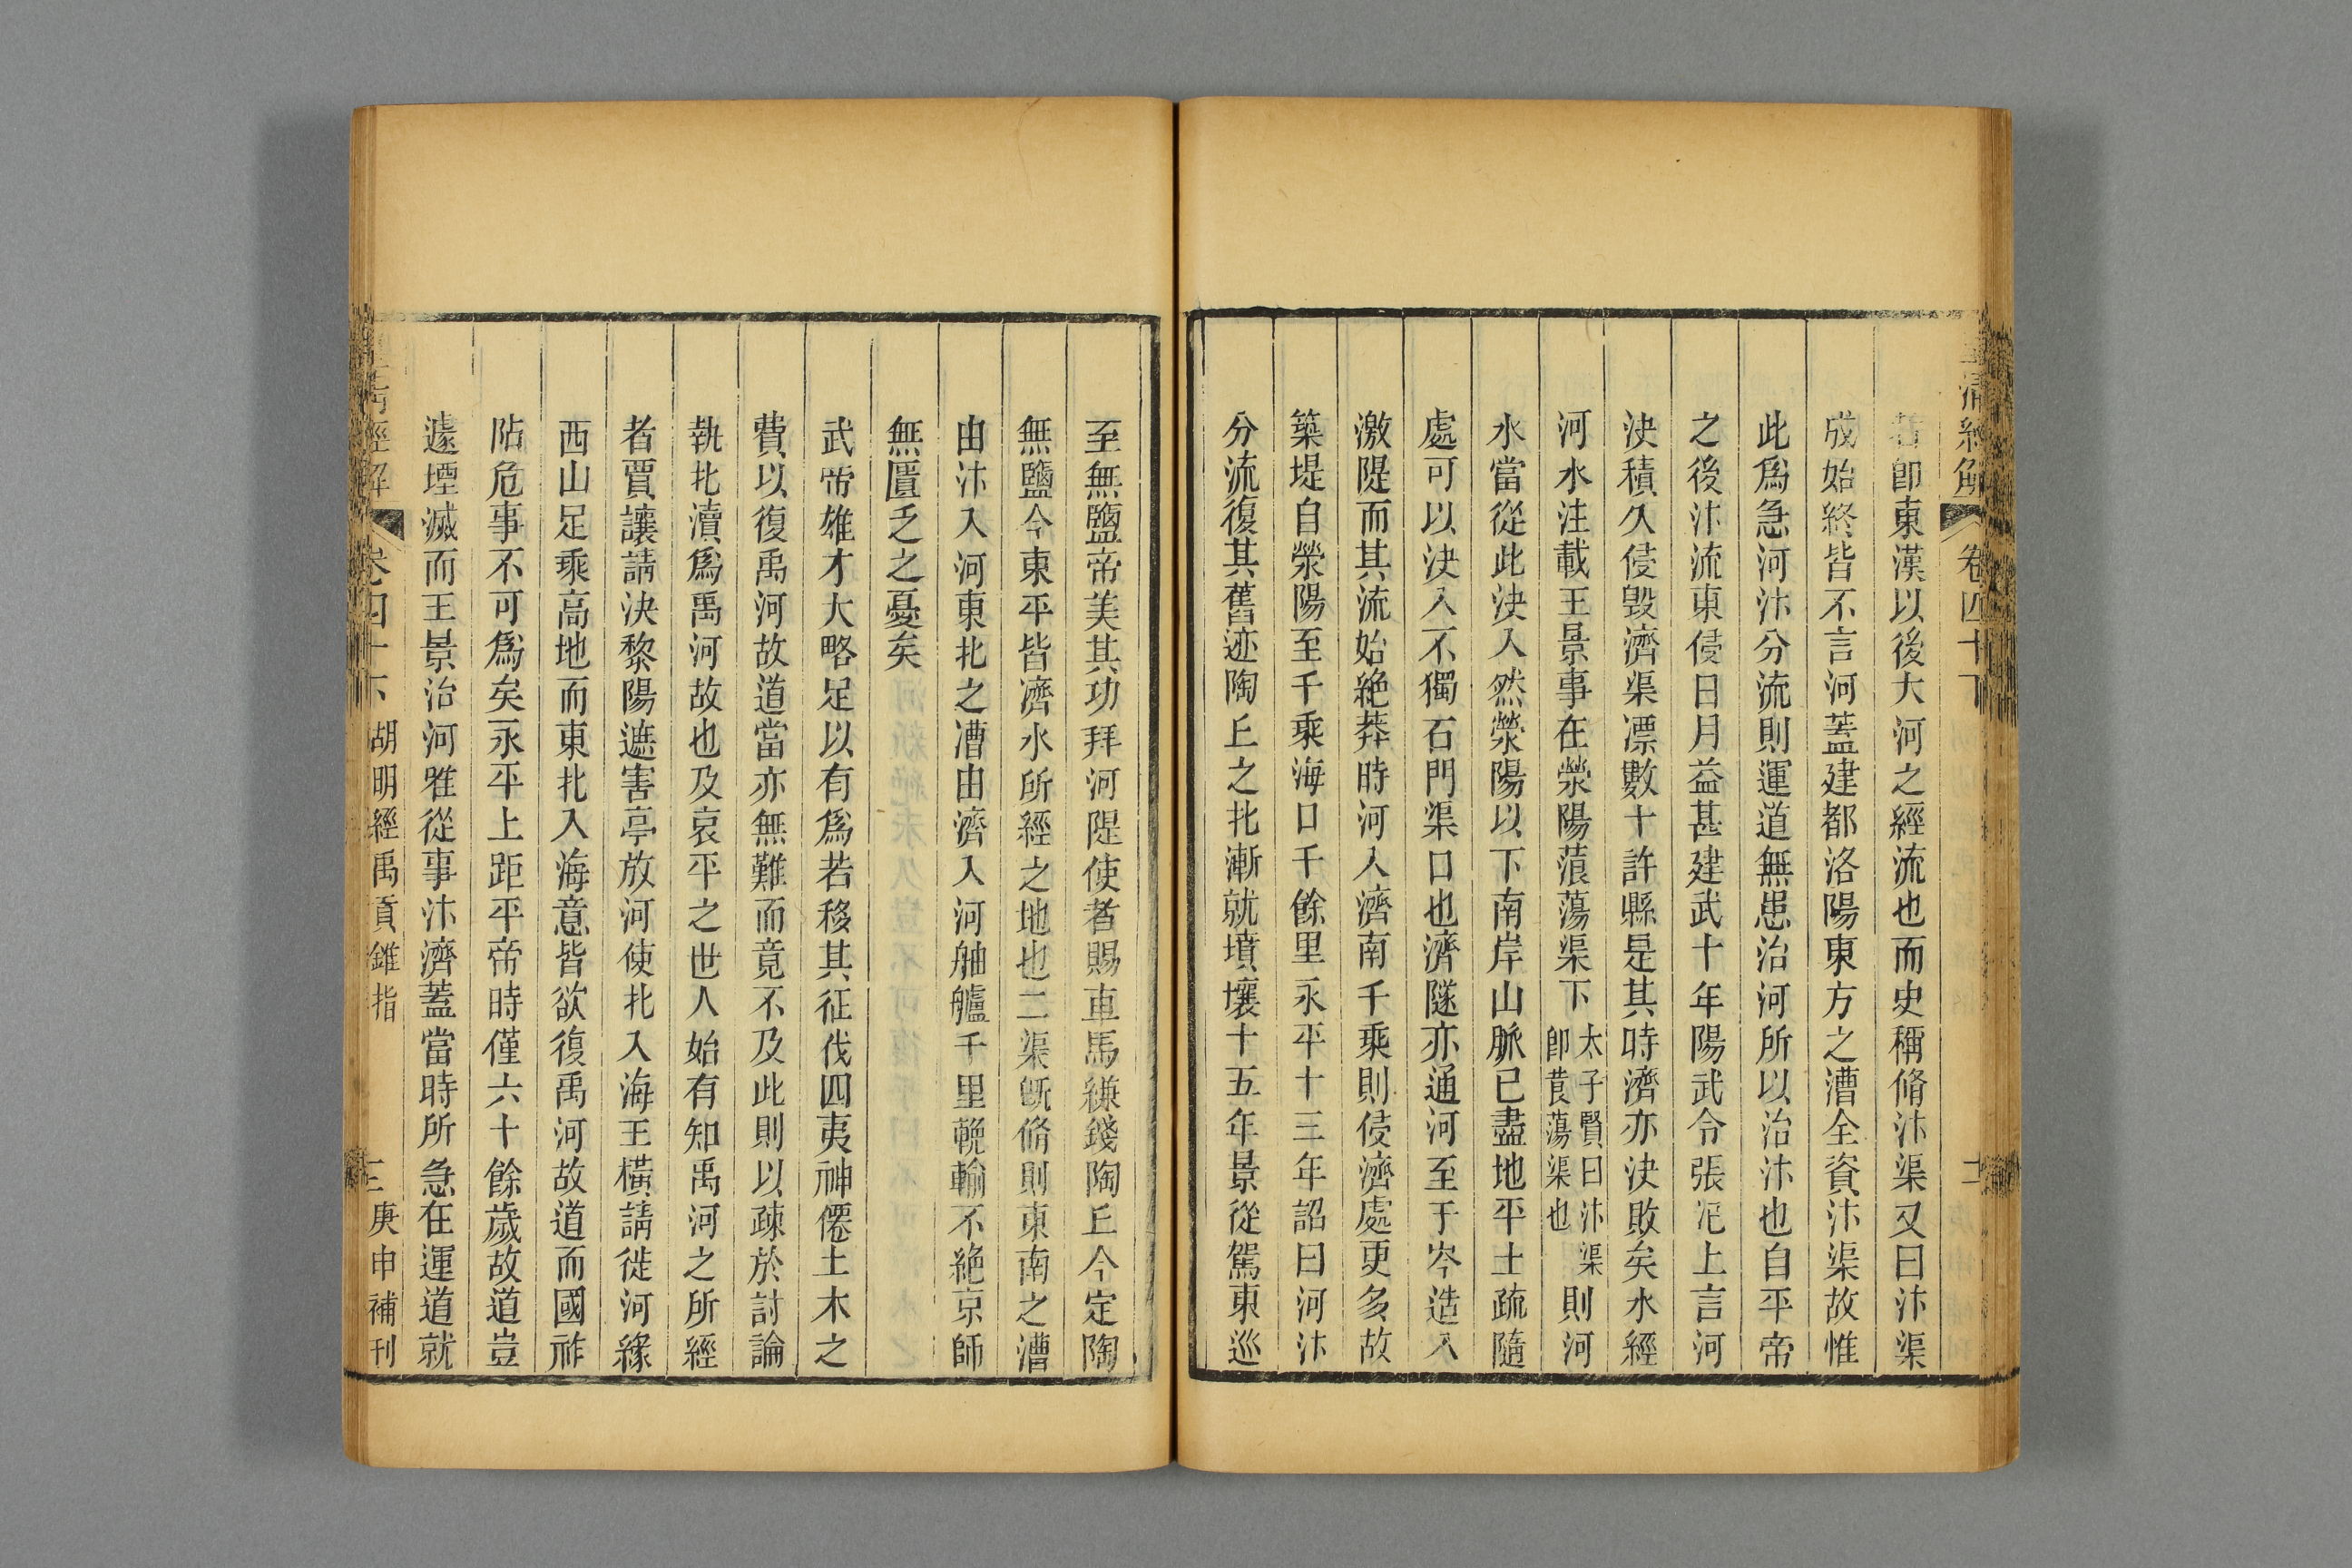 皇清經解 卷四十下 二
者卽東漢以後大河之經流也而史稱脩汴渠又曰汴渠
成始終皆不言河蓋建都洛陽東方之漕全資汴渠故惟
此爲急河汴分流則運道無患治河所以治汴也自平帝
之後汴流東侵日月益甚建武十年陽武令張汜上言河
決積久侵毀濟渠漂數十許縣是其時濟亦決敗矣水經
河水注載王景事在滎陽蒗蕩渠下太子賢曰汴渠卽莨蕩渠也則河
水當從此決入然滎陽以下南岸山脈已盡地平土疏隨
處可以決入不獨石門渠口也濟隧亦通河至于岑造入
激隄而其流始絶莽時河入濟南千乘則侵濟處更多故
築堤自滎陽至千乘海口千餘里永平十三年詔曰河汴
分流復其舊迹陶丘之北漸就墳壤十五年景從駕東巡
至無鹽帝美其功拜河隄使者賜車馬縑錢陶丘今定陶
無鹽今東平皆濟水所經之地也二渠旣脩則東南之漕
由汴入河東北之漕由濟入河舳艫千里輓輸不絶京師
無匱乏之憂矣
武帝雄才大略足以有爲若移其征伐四夷神僊土木之
費以復禹河故道當亦無難而竟不及此則以疎於討論
執北瀆爲禹河故也及哀平之世人始有知禹河之所經
者賈讓請決黎陽遮害亭放河使北入海王橫請徙河緣
西山足乘高地而東北入海意皆欲復禹河故道而國祚
阽危事不可爲矣永平上距平帝時僅六十餘歲故道豈
遽堙滅而王景治河唯從事汴濟蓋當時所急在運道就
皇清經解 卷四十下 胡明經禹貢錐指 三 庚申補刊